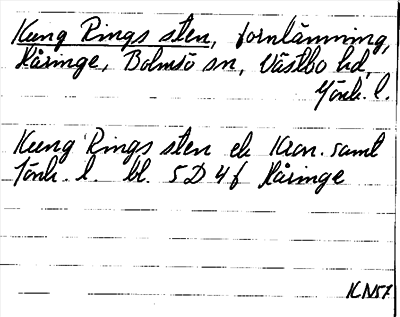 Kung Rings sten, fornlämning,
Håringe, Bolmsö sn, Västbo hd,
Jönk. l.
Kung Rings sten ek Kron. samt
Jönk. l. bl. 5D 4f Håringe
KN57